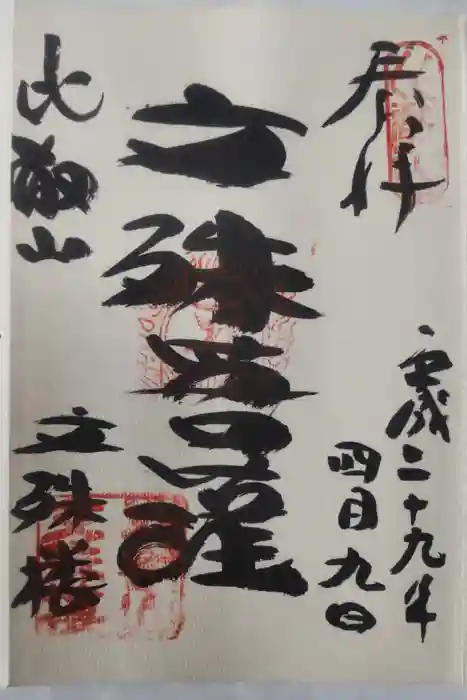 奉拝
平成二十九年
四月九日
文殊
比叡山
文殊楼